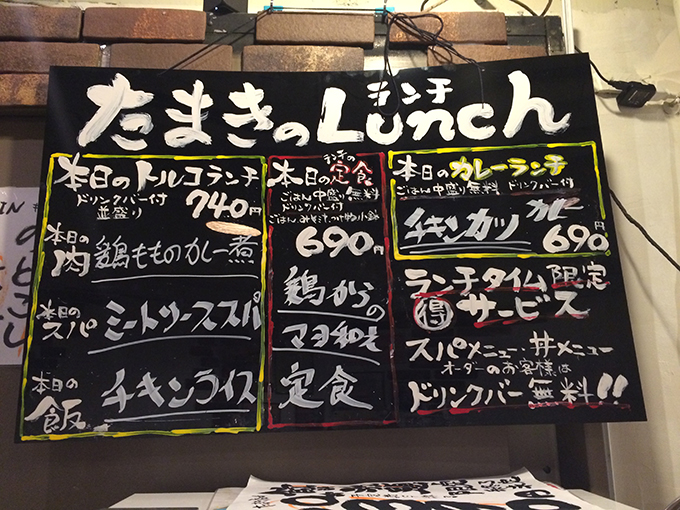 ランチ
たまきのLunch
本日のトルコランチ
ドリンクバー付
並盛り
740円
本日の肉
鶏もものカレー煮
本日のスパ
ミートソーススパ
本日の飯
チキンライス
本日の定食
ごはん中盛り無料
ドリンクバー付
690円
鶏からの
マヨ和え
定食
本日のカレーランチ
ごはん中盛り無料 ドリンクバー付
チキンカツカレー
690円
ランチタイム限定
得サービス
スパメニュー・丼メニュー
オーダーのお客様は
ドリンクバー無料!!